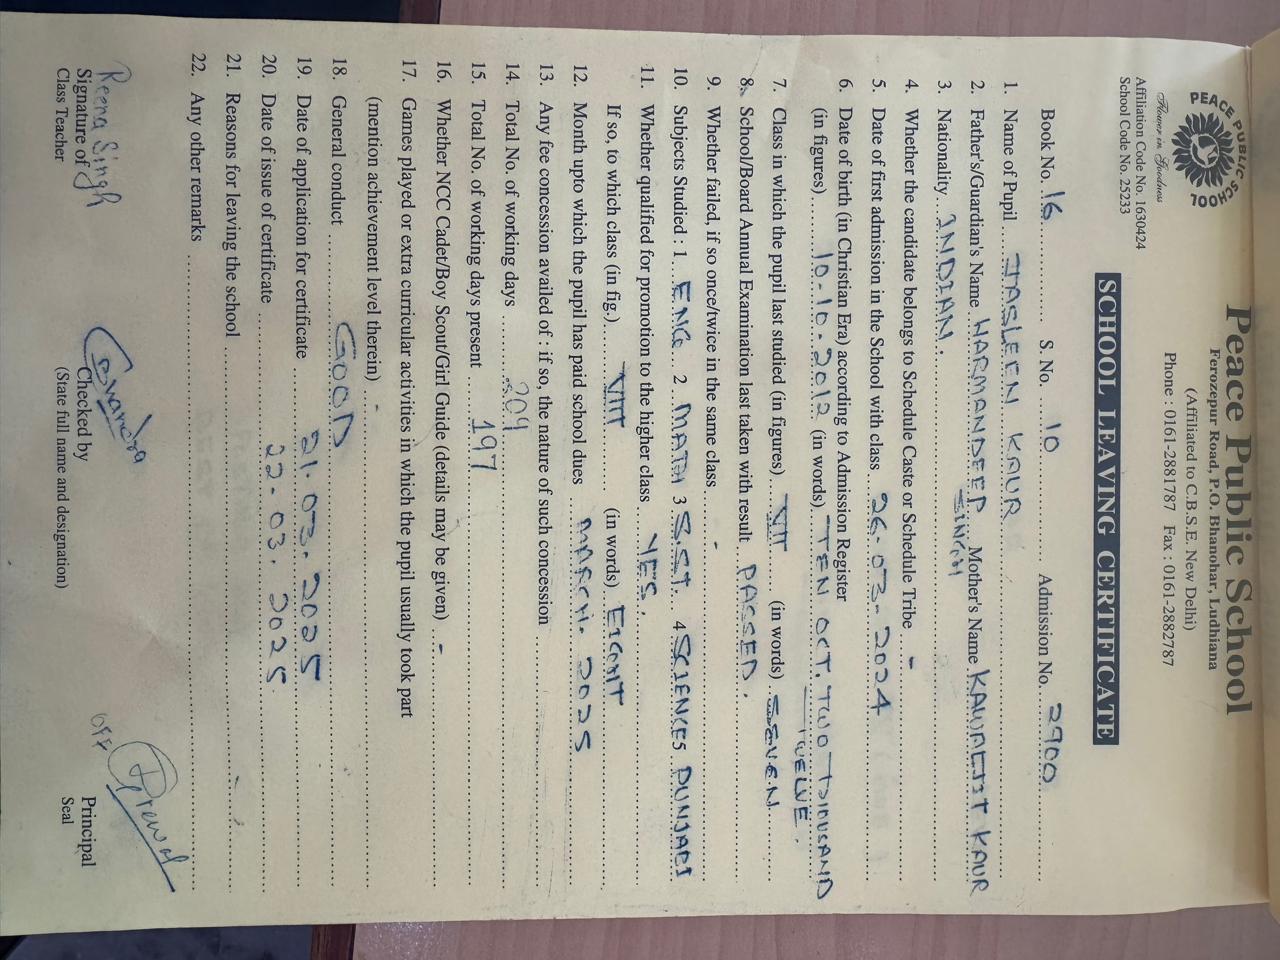 Peace Public School
Ferozepur Road, P.O. Bhanohar, Ludhiana
(Affiliated to C.B.S.E. New Delhi)
Phone : 0161-2881787 Fax : 0161-2882787
PEACE PUBLIC SCHOOL
Flower in Goodness
Affiliation Code No. 1630424
School Code No. 25233
SCHOOL LEAVING CERTIFICATE
Book No. 16 S. No. 10 Admission No. 2900
1. Name of Pupil JASLEEN KAUR
2. Father's/Guardian's Name HARMANDEEP SINGH Mother's Name KAWALJIT KAUR
3. Nationality INDIAN.
4. Whether the candidate belongs to Schedule Caste or Schedule Tribe -
5. Date of first admission in the School with class 26-03-2024
6. Date of birth (in Christian Era) according to Admission Register
(in figures) 10-10-2012 (in words) TEN OCT. TWO THOUSAND TWELVE.
7. Class in which the pupil last studied (in figures) VII (in words) SEVEN
8. School/Board Annual Examination last taken with result PASSED.
9. Whether failed, if so once/twice in the same class -
10. Subjects Studied : 1. ENG 2. MATH 3 S.ST. 4 SCIENCE 5 PUNJABI
11. Whether qualified for promotion to the higher class YES.
If so, to which class (in fig.) VIII (in words) EIGHT
12. Month upto which the pupil has paid school dues MARCH. 2025
13. Any fee concession availed of : if so, the nature of such concession
14. Total No. of working days 209
15. Total No. of working days present 197
16. Whether NCC Cadet/Boy Scout/Girl Guide (details may be given) -
17. Games played or extra curricular activities in which the pupil usually took part
(mention achievement level therein) -
18. General conduct GOOD
19. Date of application for certificate 21.03.2025
20. Date of issue of certificate 22.03.2025
21. Reasons for leaving the school
22. Any other remarks
Reena Singh
Signature of
Class Teacher
Checked by
(State full name and designation)
Off
Principal
Seal